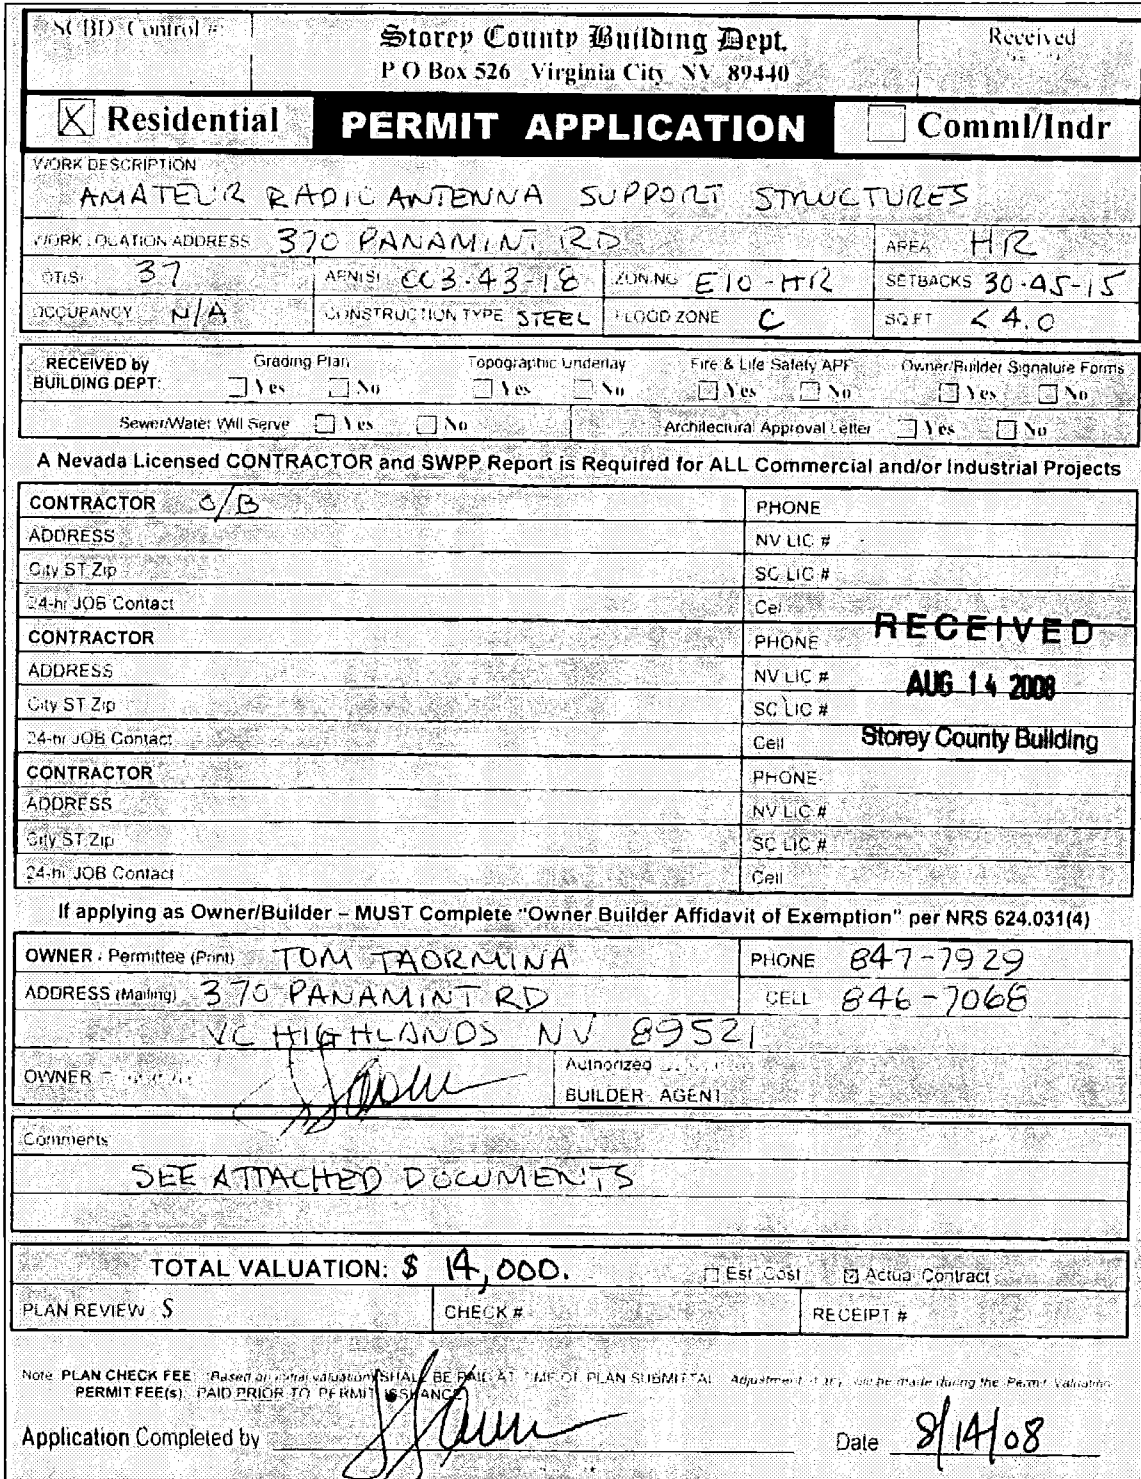 SCBD Control #
Storey County Building Dept.
P O Box 526 Virginia City NV 89440
Received
☒ Residential
PERMIT APPLICATION
☐ Comml/Indr
WORK DESCRIPTION
AMATEUR RADIO ANTENNA SUPPORT STRUCTURES
WORK LOCATION ADDRESS 370 PANAMINT RD AREA HR
37 APN(S) 003-43-18 ZONING E10-HR SETBACKS 30-45-15
OCCUPANCY N/A CONSTRUCTION TYPE STEEL FLOOD ZONE C SQ FT < 4.0
RECEIVED by BUILDING DEPT:
Grading Plan ☐ Yes ☐ No
Topographic Underlay ☐ Yes ☐ No
Fire & Life Safety APF ☐ Yes ☐ No
Owner/Builder Signature Forms ☐ Yes ☐ No
Sewer/Water Will Serve ☐ Yes ☐ No
Architectural Approval Letter ☐ Yes ☐ No
A Nevada Licensed CONTRACTOR and SWPP Report is Required for ALL Commercial and/or Industrial Projects
CONTRACTOR O/B PHONE
ADDRESS NV LIC #
City ST Zip SC LIC #
24-hr JOB Contact Cell
CONTRACTOR PHONE
ADDRESS NV LIC #
City ST Zip SC LIC #
24-hr JOB Contact Cell
RECEIVED
AUG 14 2008
Storey County Building
CONTRACTOR PHONE
ADDRESS NV LIC #
City ST Zip SC LIC #
24-hr JOB Contact Cell
If applying as Owner/Builder – MUST Complete "Owner Builder Affidavit of Exemption" per NRS 624.031(4)
OWNER / Permittee (Print) TOM TAORMINA PHONE 847-7929
ADDRESS (Mailing) 370 PANAMINT RD CELL 846-7068
VC HIGHLANDS NV 89521
OWNER
Authorized
BUILDER AGENT
Comments
SEE ATTACHED DOCUMENTS
TOTAL VALUATION: $ 14,000. ☐ Est Cost ☑ Actual Contract
PLAN REVIEW $ CHECK # RECEIPT #
Note PLAN CHECK FEE: (Based on initial valuation) SHALL BE PAID AT TIME OF PLAN SUBMITTAL Adjustment if any will be made during the Permit Valuation
PERMIT FEE(s): PAID PRIOR TO PERMIT ISSUANCE
Application Completed by Date 8/14/08